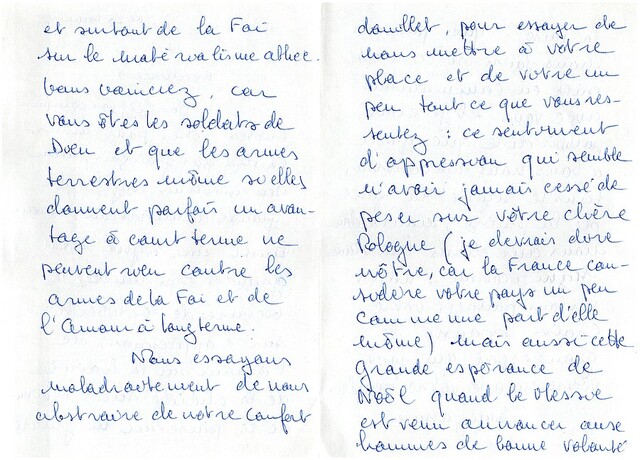 et surtout de la Foi
sur le matérialisme athée.
Vous vaincrez, car
vous êtes les soldats de
Dieu et que les armes
terrestres même si elles
donnent parfois un avan-
tage à court terme ne
peuvent rien contre les
armes de la Foi et de
l'Amour à long terme.
Nous essayons
maladroitement de nous
abstraire de notre confort
douillet, pour essayer de
nous mettre à votre
place et de vivre un
peu tout ce que vous res-
sentez : ce sentiment
d'oppression qui semble
n'avoir jamais cessé de
peser sur votre chère
Pologne (je devrais dire
nôtre, car la France con-
sidère votre pays un peu
comme une part d'elle
même) mais aussi cette
grande espérance de
Noël quand le Messie
est venu annoncer aux
hommes de bonne volonté